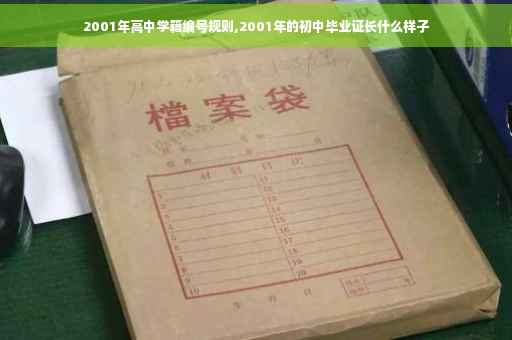 2001年高中学籍编号规则,2001年的初中毕业证长什么样子
檔案袋
材料目次
1 11
2 12
3 13
4 14
5 15
6 16
7 17
8 18
9 19
10 20
年 月 日